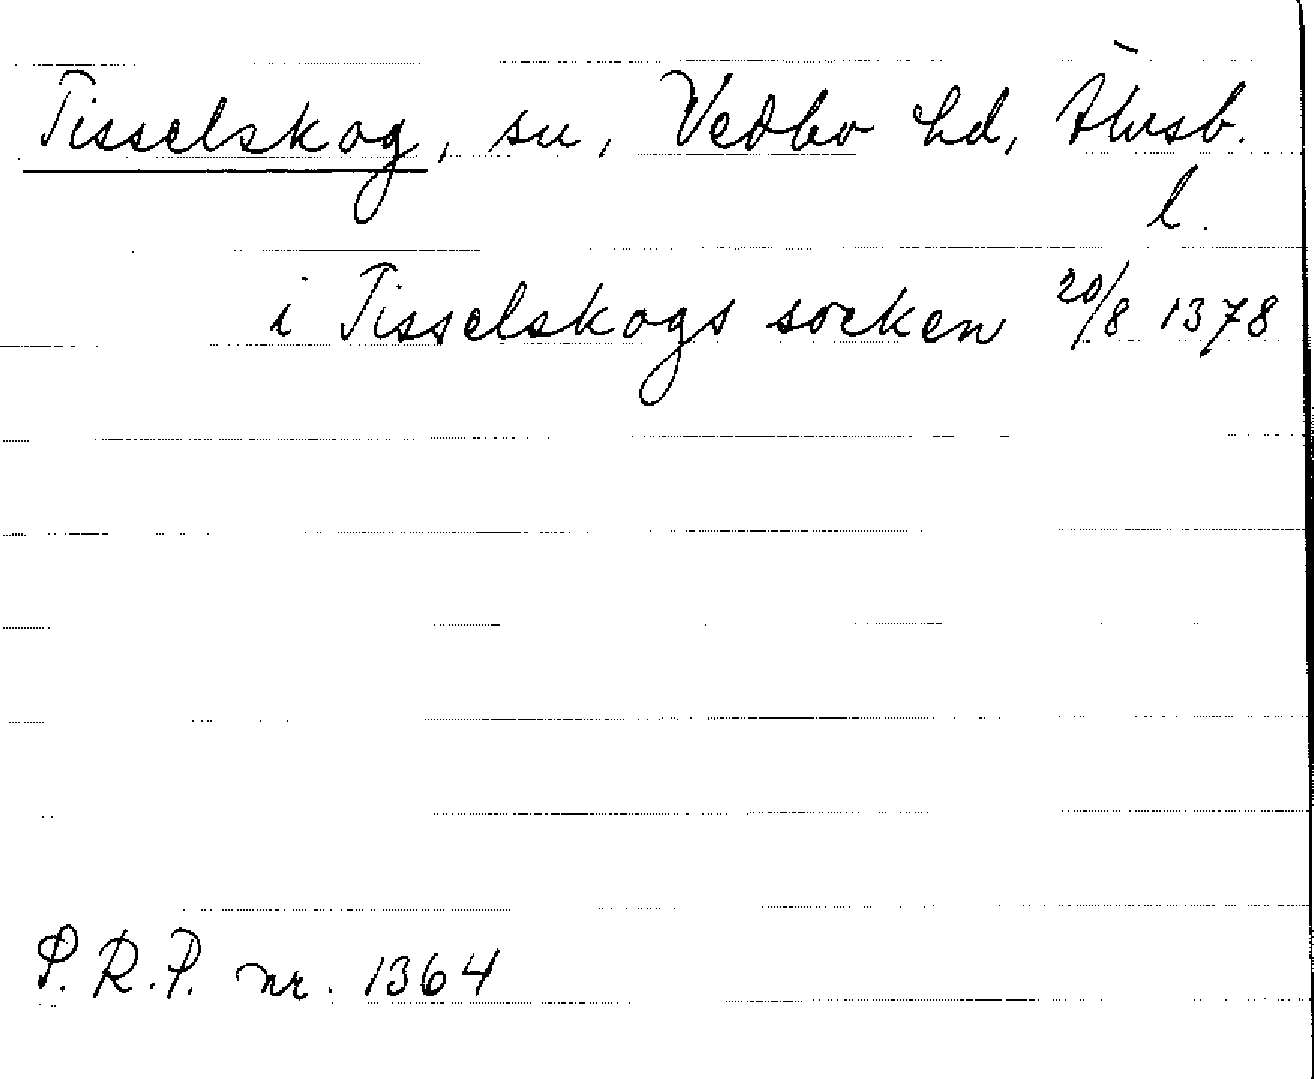 Tisselskog, sn, Vedbo hd, Älvsb.
l.
i Tisselskogs socken 20/8 1378
P.R.P. nr. 1364